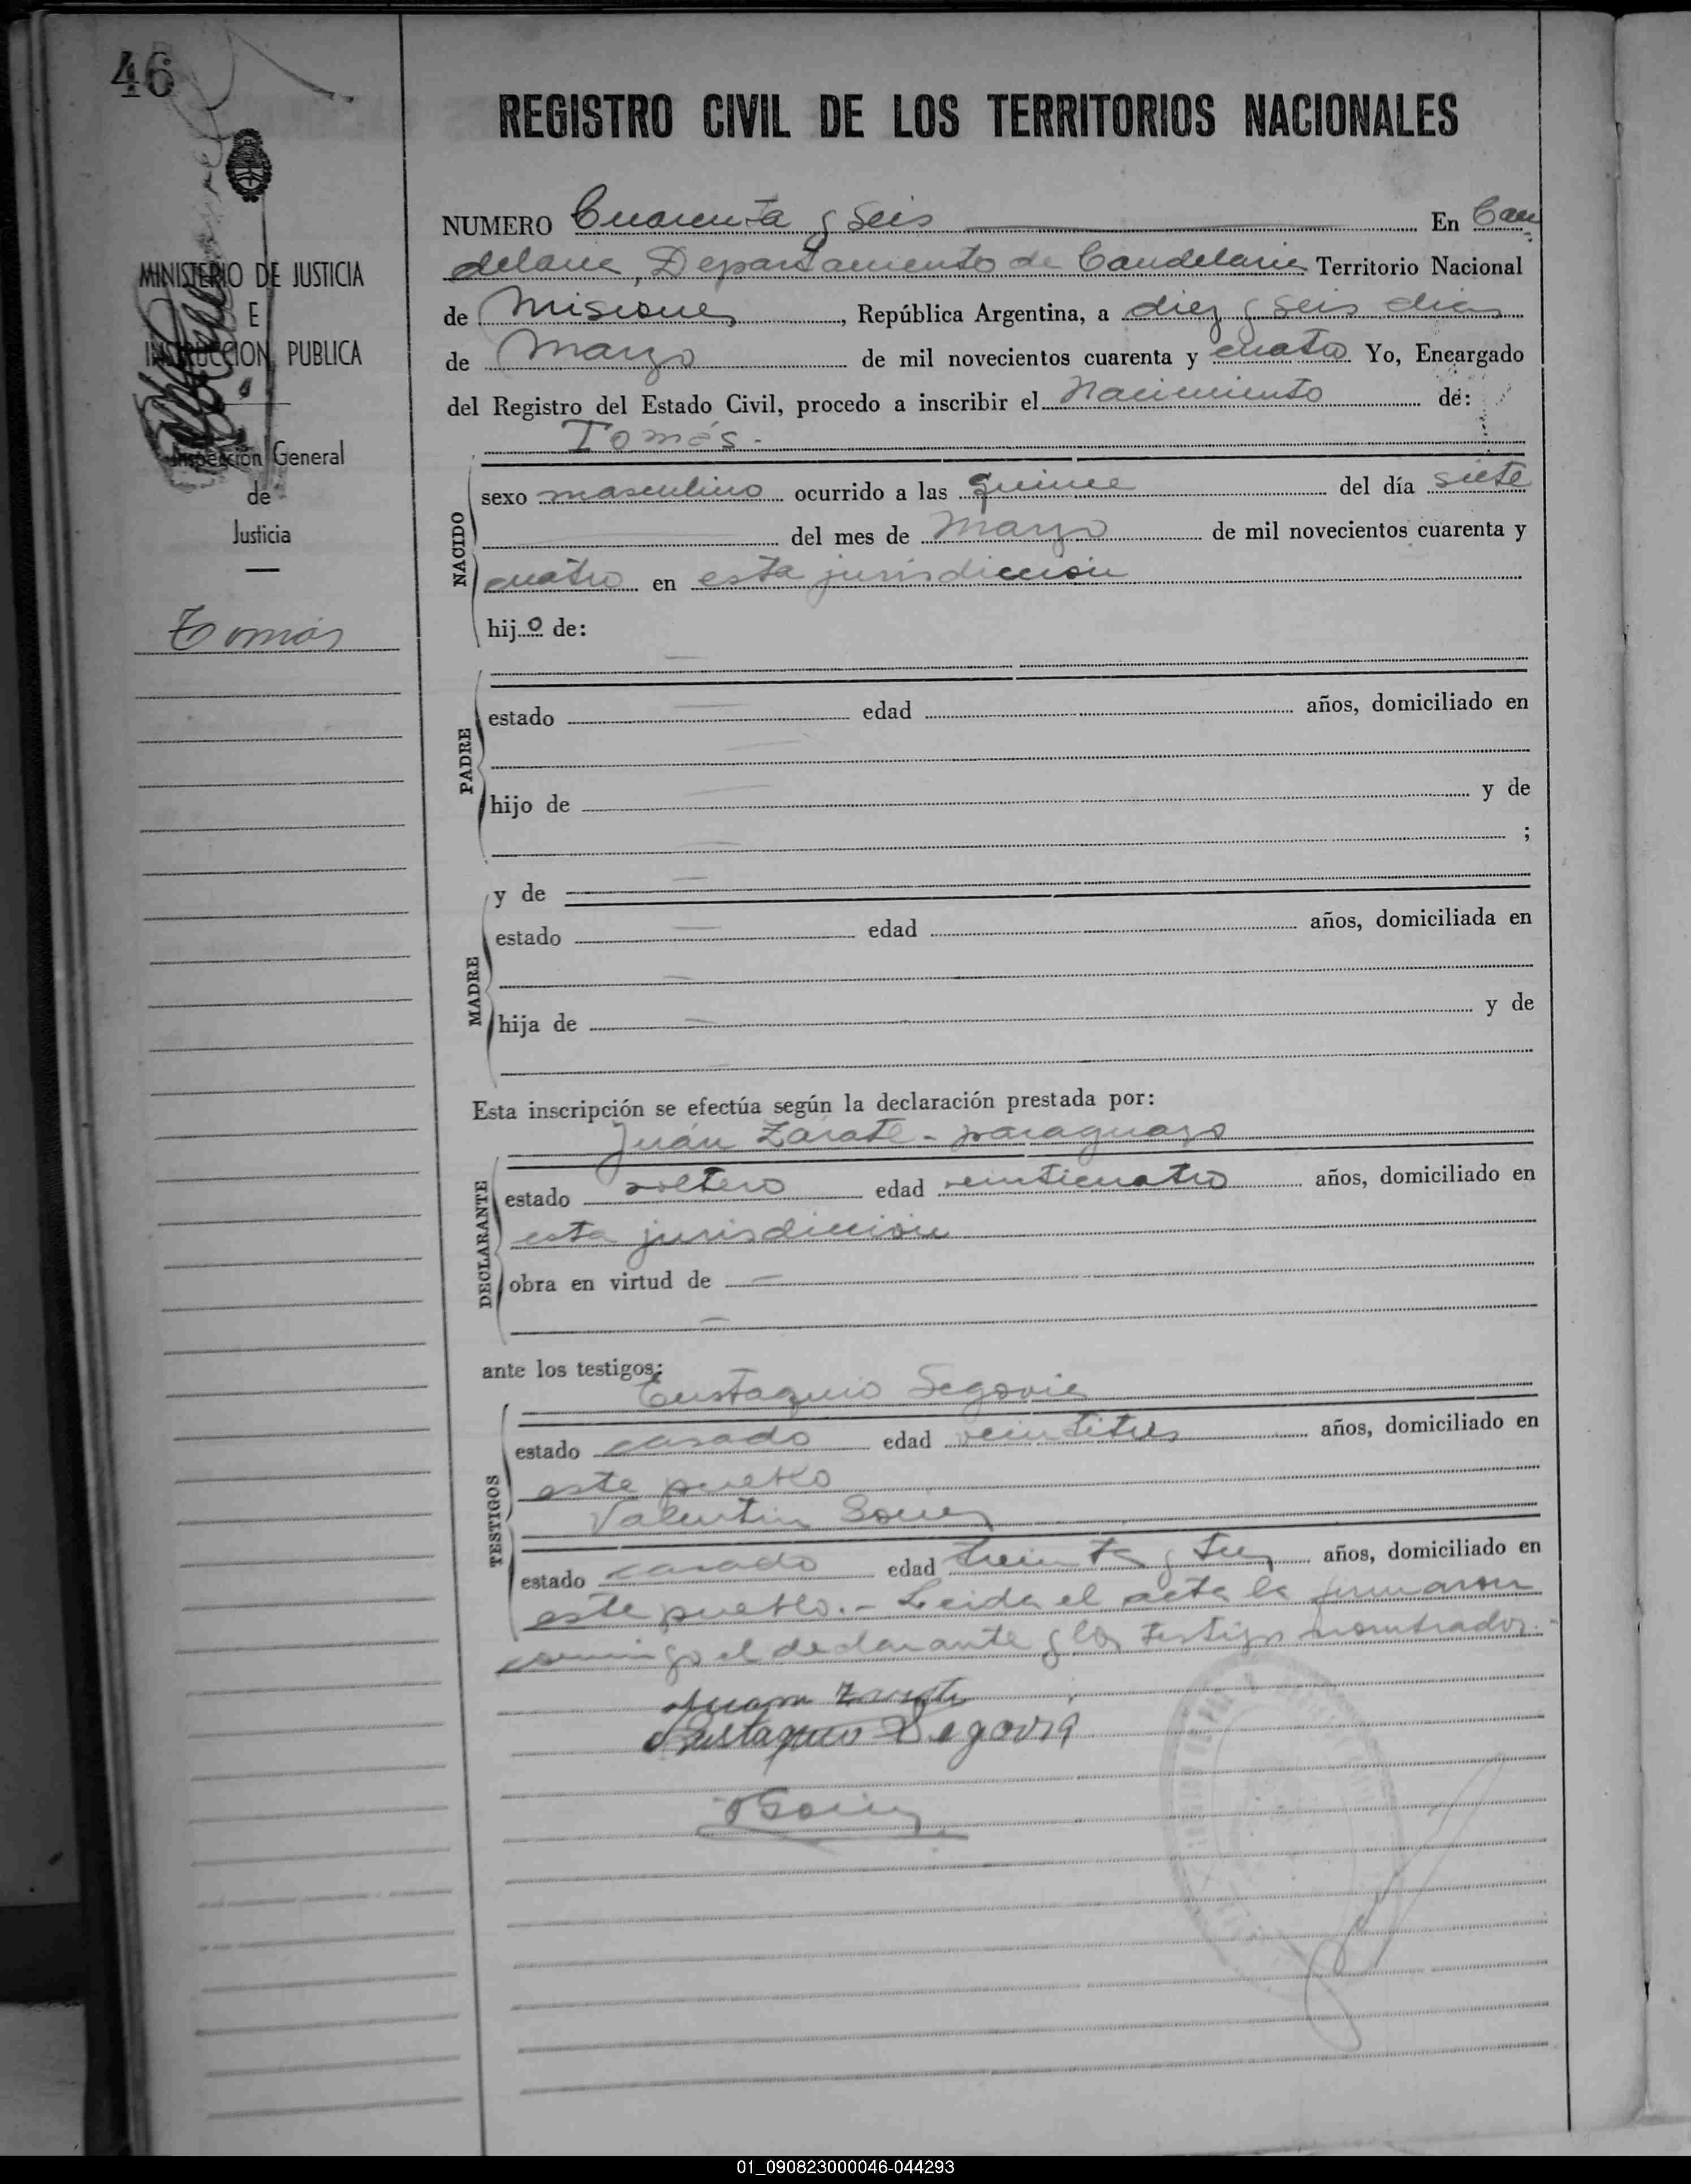 46
REGISTRO CIVIL DE LOS TERRITORIOS NACIONALES
MINISTERIO DE JUSTICIA
E
INSTRUCCION PUBLICA
Inspección General
de
Justicia
Tomás
NUMERO Cuarenta y Seis En Can-
delaria, Departamento de Candelaria Territorio Nacional
de Misiones, República Argentina, a diez y seis dias
de Marzo de mil novecientos cuarenta y cuatro Yo, Encargado
del Registro del Estado Civil, procedo a inscribir el Nacimiento de:
Tomás.-
NACIDO
sexo masculino ocurrido a las quince del día siete
del mes de Marzo de mil novecientos cuarenta y
cuatro en esta jurisdiccion
hijo de:
PADRE
estado — edad años, domiciliado en
—
hijo de — y de
— ;
y de —
MADRE
estado — edad años, domiciliada en
—
hija de — y de
Esta inscripción se efectúa según la declaración prestada por:
Juán Zárate - paraguayo
DECLARANTE
estado soltero edad veinticuatro años, domiciliado en
esta jurisdiccion
obra en virtud de —
—
ante los testigos:
Eustaquio Segovia
TESTIGOS
estado casado edad veintitres años, domiciliado en
este pueblo
Valentin
estado casado edad treinta y tres años, domiciliado en
este pueblo.- Leida el acta la firmaron
conmigo el declarante y los testigos nombrados.-
Juan Zarate
Eustaquio Segovia
01_090823000046-044293